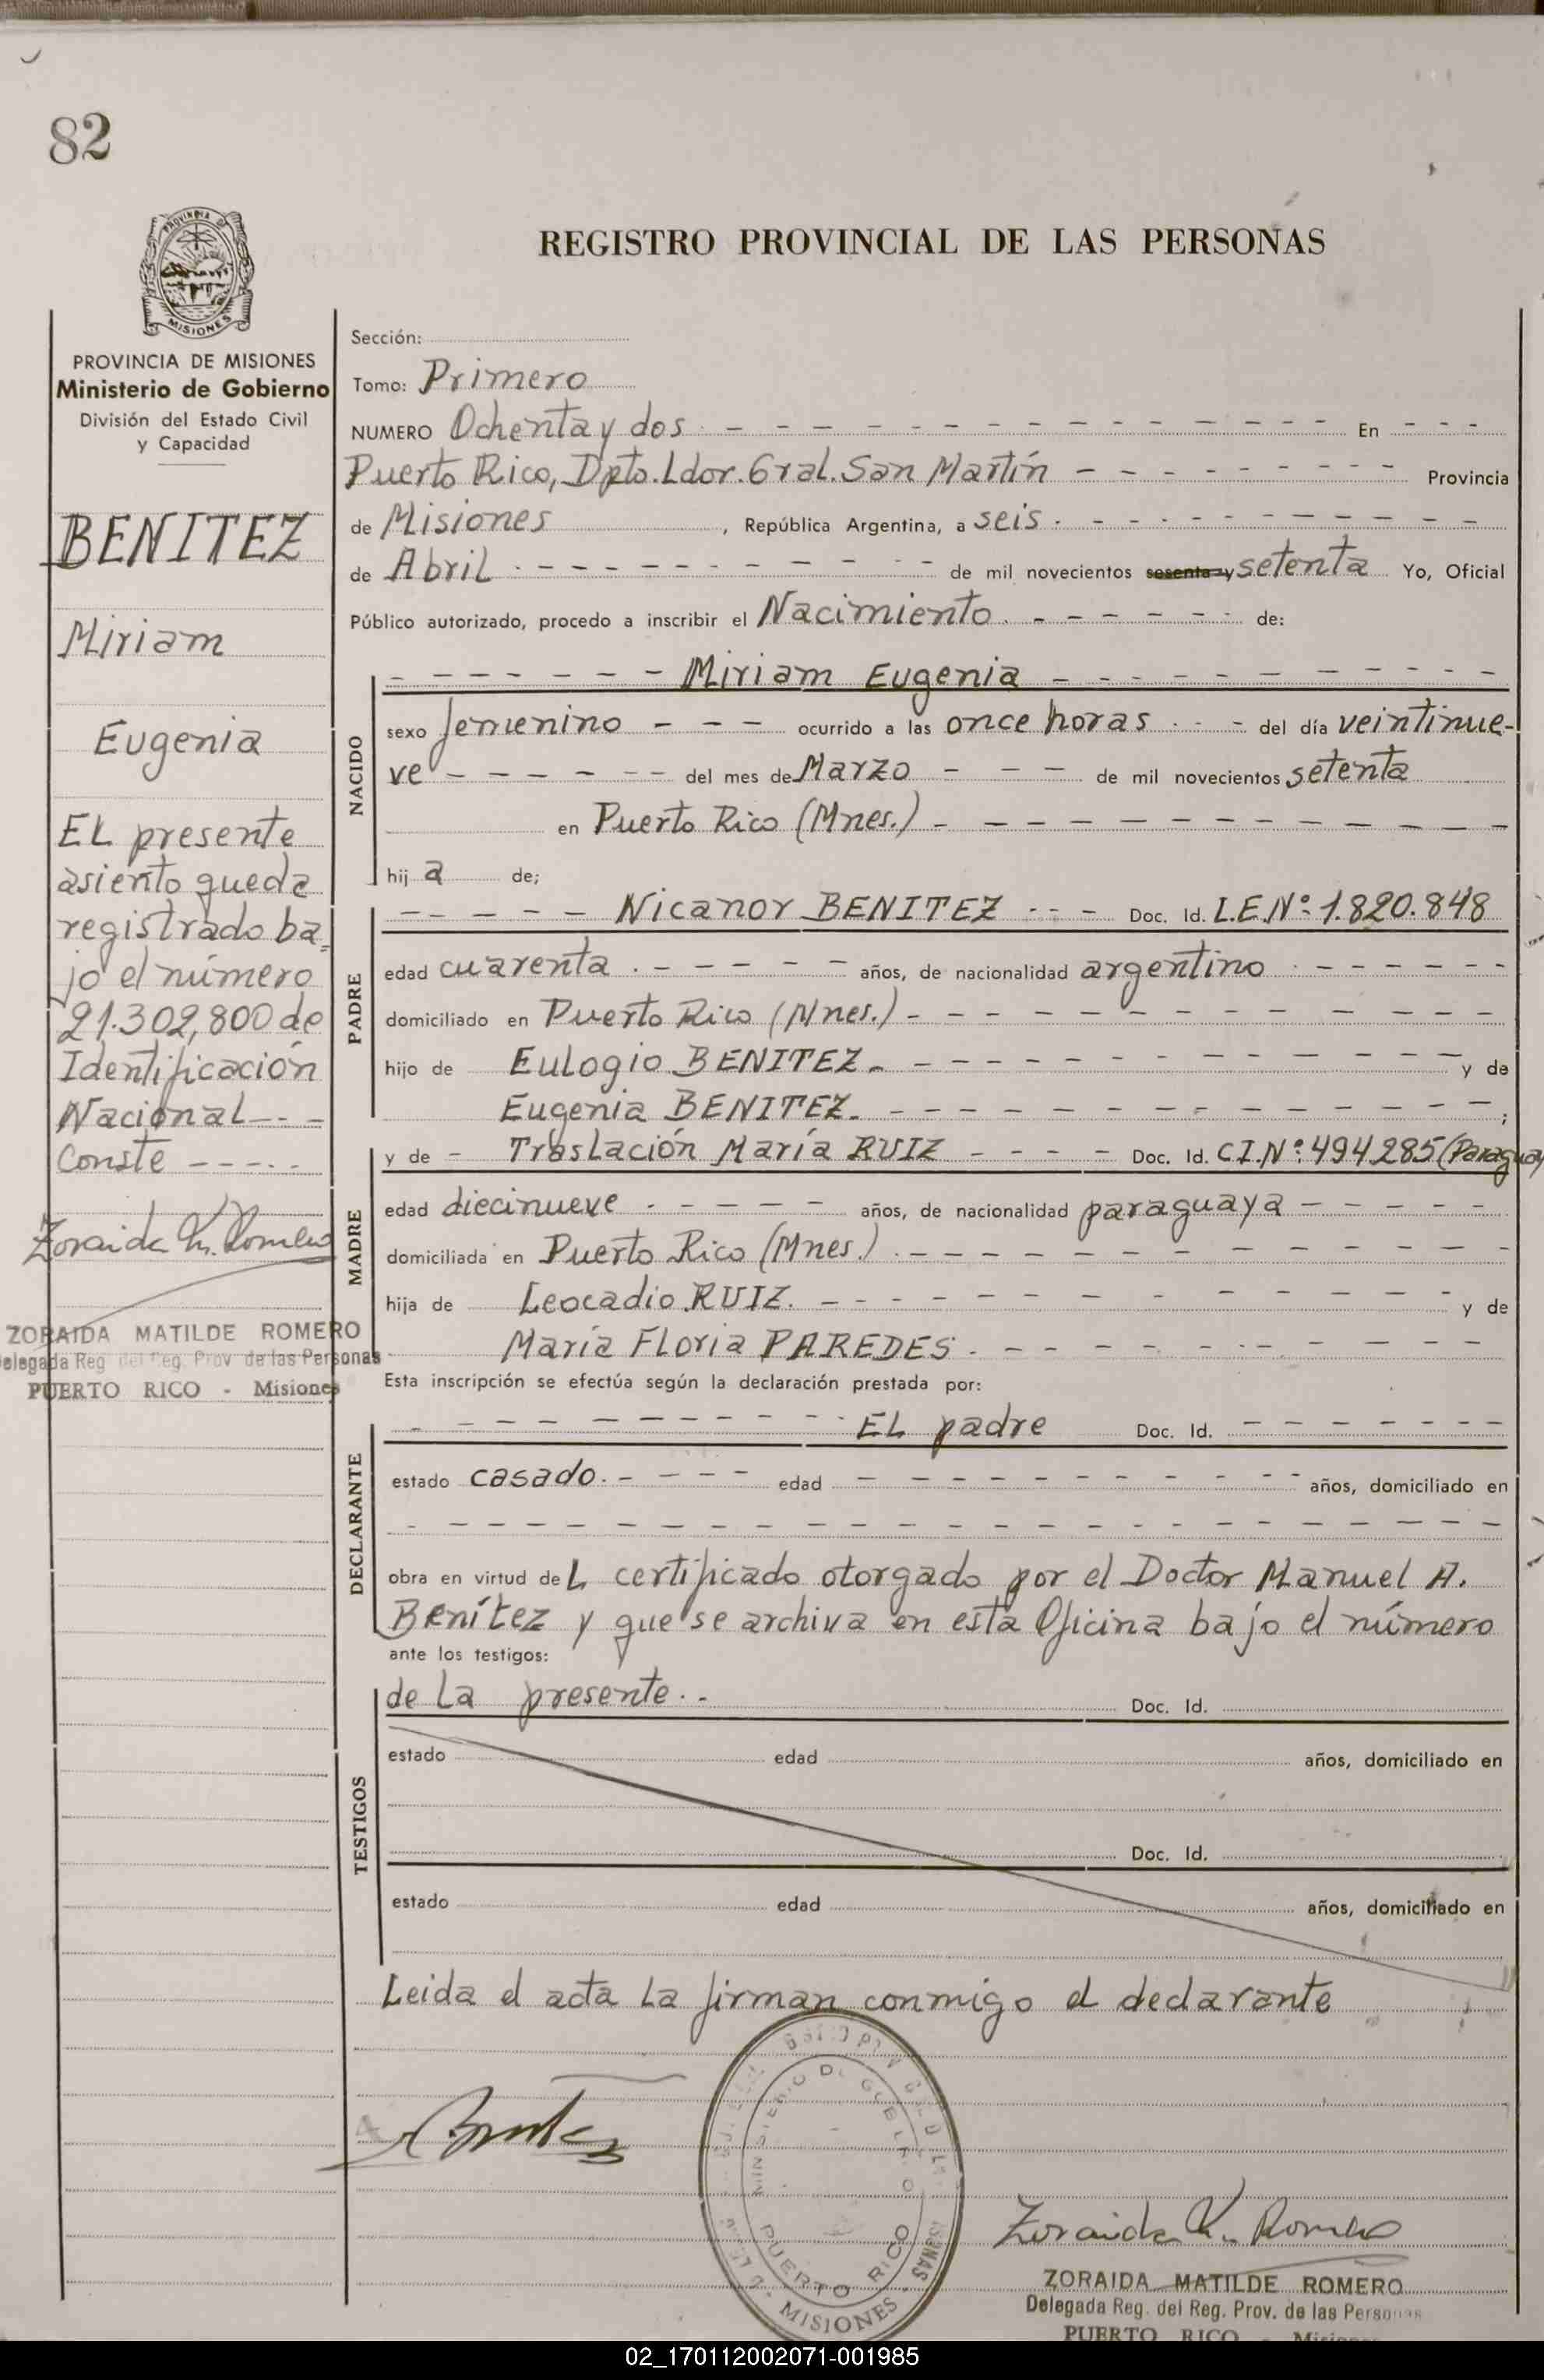 82
PROVINCIA DE MISIONES
Ministerio de Gobierno
División del Estado Civil
y Capacidad
BENITEZ
Miriam
Eugenia
EL presente
asiento queda
registrado ba=
jo el número
21.302,800 de
Identificación
Nacional - - -
Conste - - - - -
Zoraida M. Romero
ZORAIDA MATILDE ROMERO
Delegada Reg. del Reg. Prov. de las Personas
PUERTO RICO - Misiones
REGISTRO PROVINCIAL DE LAS PERSONAS
Sección:
Tomo: Primero
NUMERO Ochenta y dos - - - En - - -
Puerto Rico, Dpto. Ldor. Gral. San Martín - - - Provincia
de Misiones , República Argentina, a seis. - - -
de Abril - - - de mil novecientos sesenta y setenta Yo, Oficial
Público autorizado, procedo a inscribir el Nacimiento. - - - de:
NACIDO
- - - Miriam Eugenia - - -
sexo femenino - - - ocurrido a las once horas - - - del día veintinue-
ve - - - del mes de Marzo - - - de mil novecientos setenta
en Puerto Rico (Mnes.) - - -
hij a de;
PADRE
- - - Nicanor BENITEZ - - - Doc. Id. L.E.Nº: 1.820.848
edad cuarenta. - - - años, de nacionalidad argentino - - -
domiciliado en Puerto Rico (Mnes.) - - -
hijo de Eulogio BENITEZ. - - - y de
Eugenia BENITEZ. - - - ;
MADRE
y de - Traslación María RUIZ - - - Doc. Id. C.I.Nº: 494285 (Paraguay
edad diecinueve . - - - años, de nacionalidad paraguaya - - -
domiciliada en Puerto Rico (Mnes.) . - - -
hija de Leocadio RUIZ. - - - y de
María Floria PAREDES. - - -
Esta inscripción se efectúa según la declaración prestada por:
DECLARANTE
- - - EL padre Doc. Id. - - -
estado casado. - - - edad - - - años, domiciliado en
- - -
obra en virtud de L certificado otorgado por el Doctor Manuel A.
Benítez y que se archiva en esta Oficina bajo el número
ante los testigos:
de La presente. . - Doc. Id.
TESTIGOS
estado edad años, domiciliado en
Doc. Id.
estado edad años, domiciliado en
Leida el acta La firman conmigo el declarante
MINISTERIO DE GOBIERNO
PUERTO RICO
MISIONES
Zoraida M. Romero
ZORAIDA MATILDE ROMERO
Delegada Reg. del Reg. Prov. de las Personas
PUERTO RICO - Misiones
02_170112002071-001985